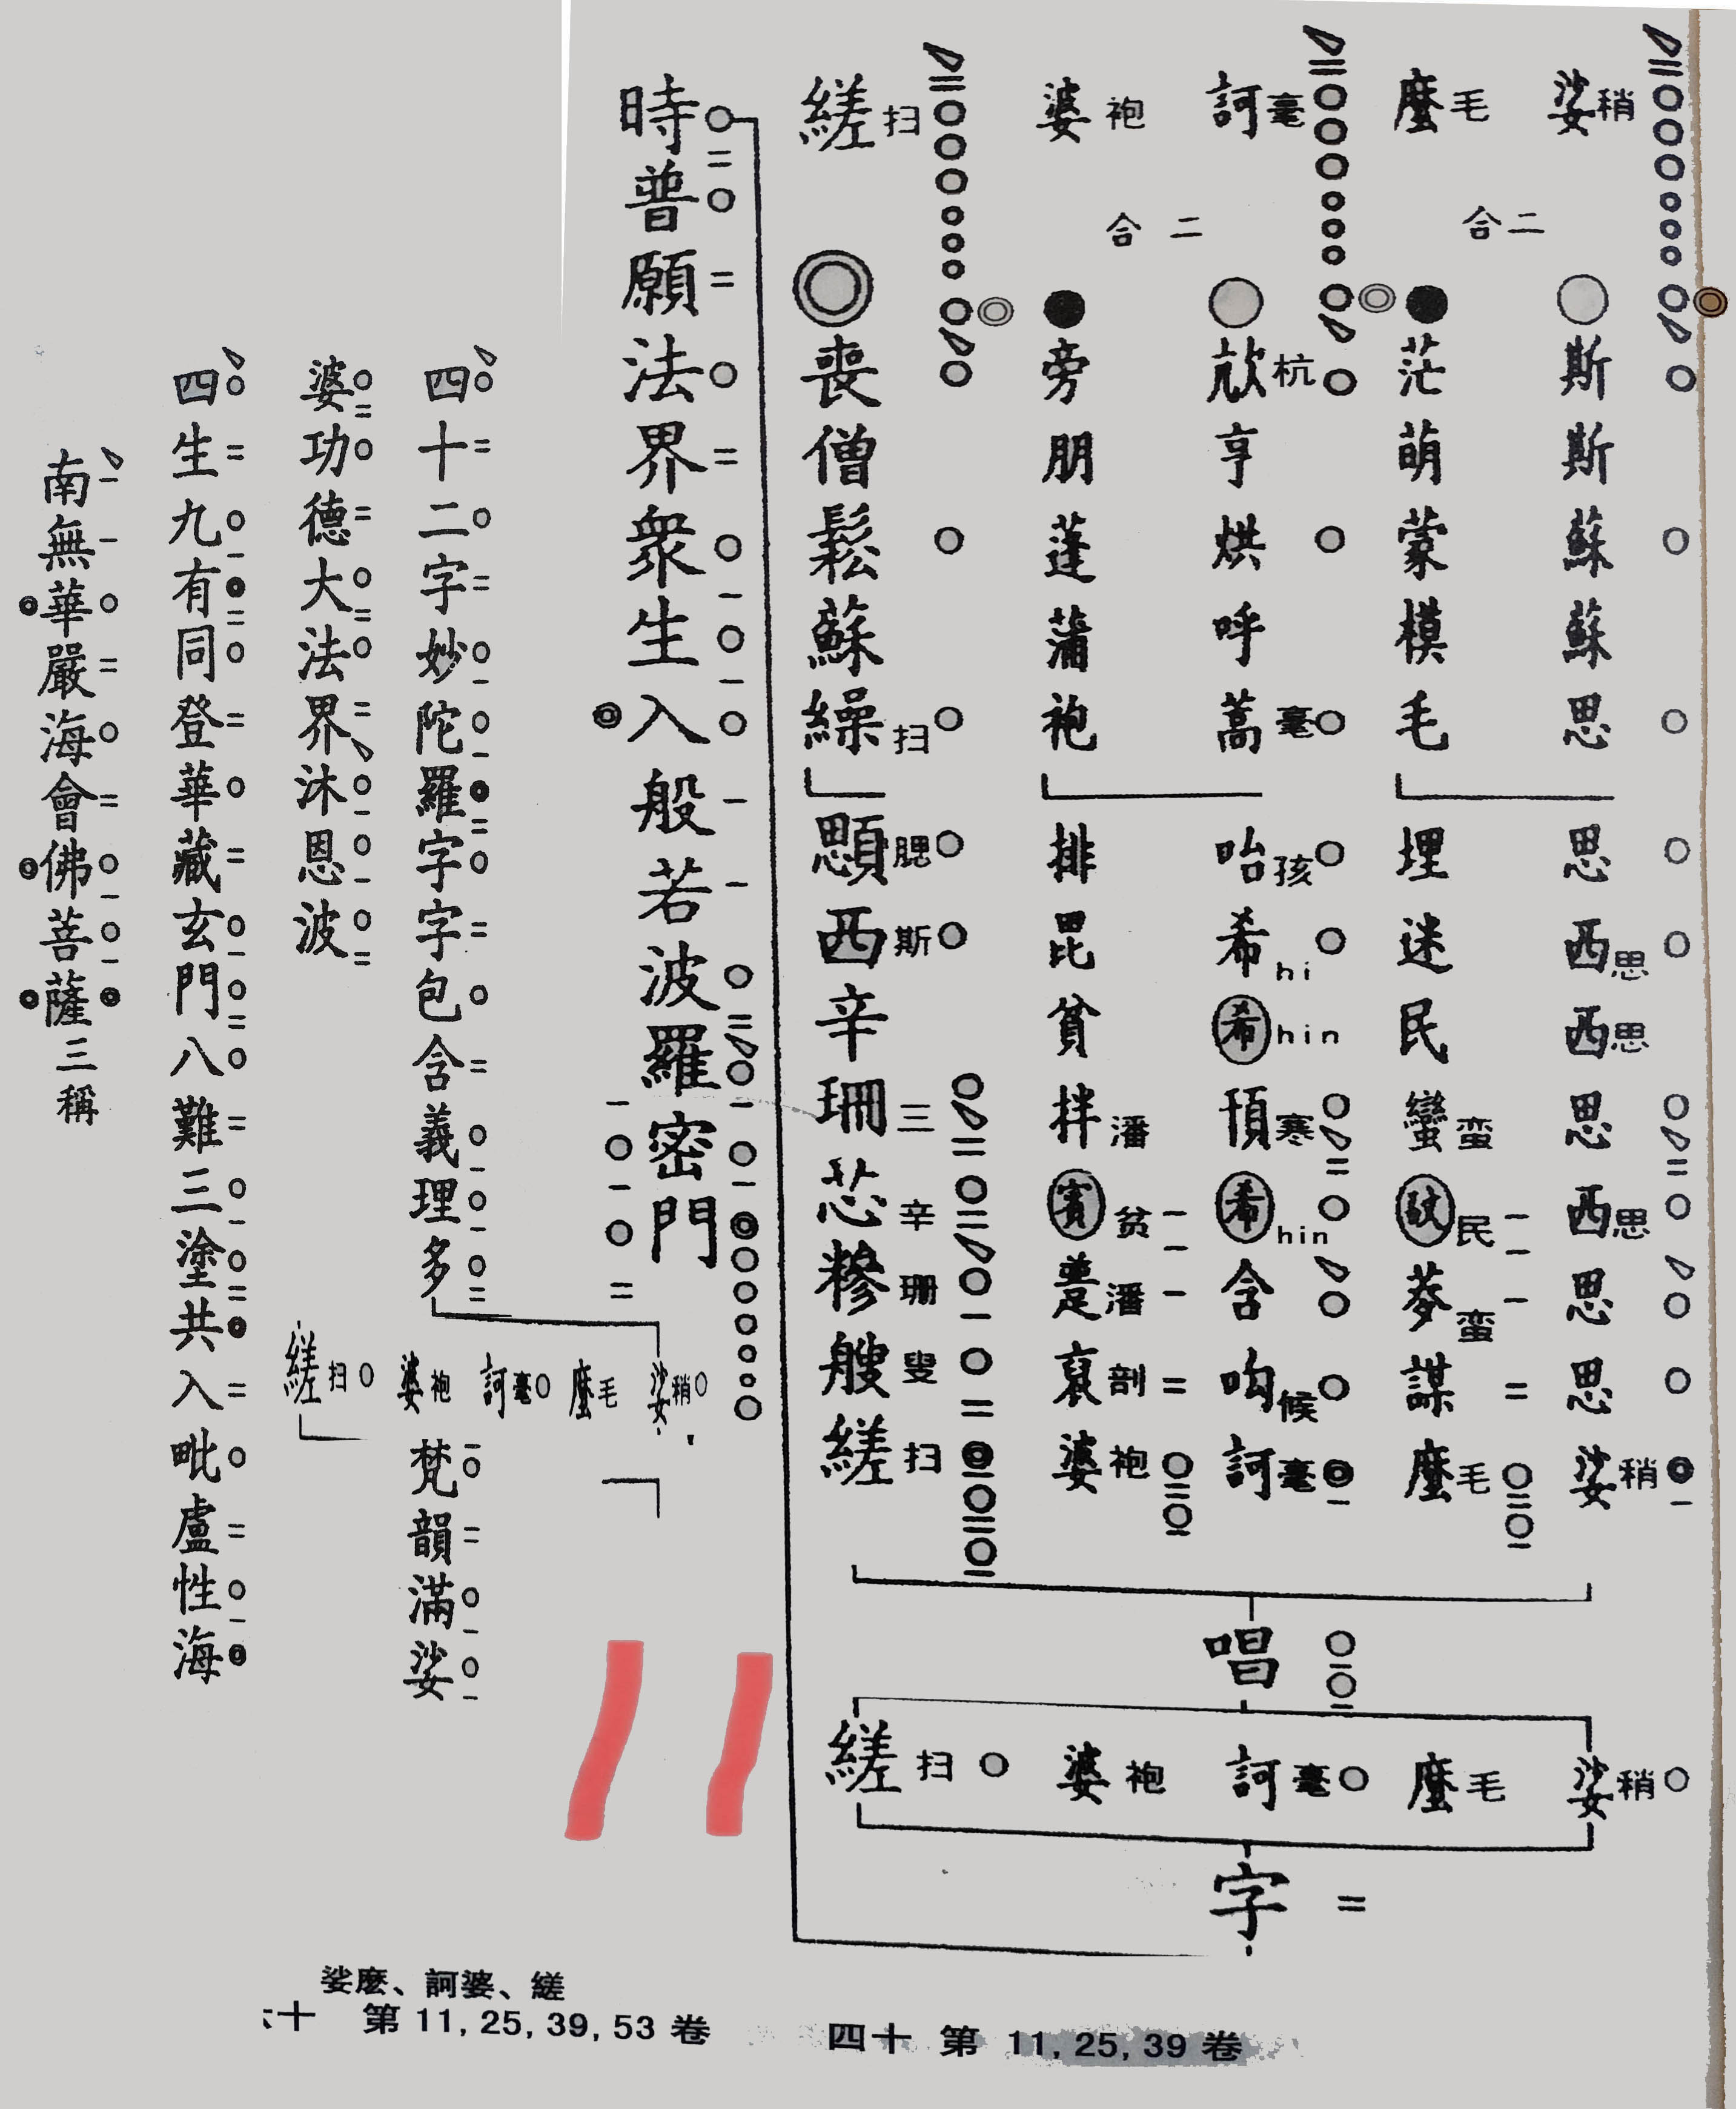 娑稍 二合 斯斯蘇蘇思 思西思西思思西思思思娑稍
麼毛 茫萌蒙模毛 埋迷民蠻蛮民䓤蛮謀麼毛
訶毫 二合 杭亨烘呼蒿毫 咍孩希hi希hin頇寒希hin含呴候訶毫
婆袍 旁朋蓬蒲袍 排毘貧拌潘賓贫潘裒剖婆袍
縒扫 喪僧鬆蘇繰扫 顋腮西斯辛珊三芯辛糝珊艘叟縒扫
唱
娑稍 麼毛 訶毫 婆袍 縒扫
字
時普願法界衆生入般若波羅密門
四十二字妙陀羅字字包含義理多
娑稍 麼毛 訶毫 婆袍 縒扫
梵韻滿娑
婆功德大法界沐恩波
四生九有同登華藏玄門八難三塗共入毗盧性海
南無華嚴海會佛菩薩三稱
娑麽、訶婆、縒
十 第 11, 25, 39, 53 卷
四十 第 11, 25, 39 卷